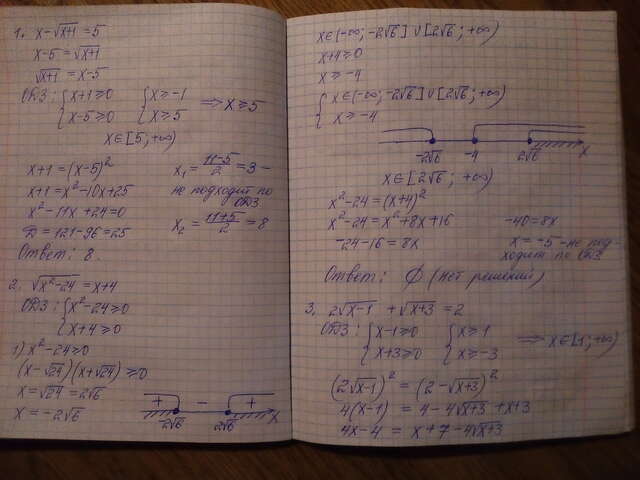 1. x-√x+1 = 5
x-5 = √x+1
√x+1 = x-5
ОДЗ: { x+1≥0 { x≥-1 ⟹ x≥5
x-5≥0 x≥5
x∈[5; +∞)
x+1 = (x-5)² x₁ = (11-5)/2 = 3 -
x+1 = x²-10x+25 не подходит по
ОДЗ
x²-11x+24=0
D = 121-96 = 25 x₂ = (11+5)/2 = 8
Ответ: 8.
2. √x²-24 = x+4
ОДЗ: { x²-24≥0
x+4≥0
1) x²-24≥0
(x-√24)(x+√24) ≥0
x = √24 = 2√6
x = -2√6
+ - +
2√6 2√6 x
x∈(-∞; -2√6] ∪ [2√6; +∞)
x+4≥0
x≥-4
{ x∈(-∞; -2√6] ∪ [2√6; +∞)
x≥-4
-2√6 -4 2√6 x
x∈[2√6; +∞)
x²-24 = (x+4)²
x²-24 = x²+8x+16 -40 = 8x
-24-16 = 8x x = -5 - не под-
ходит по ОДЗ
Ответ: ∅ (нет решений)
3. 2√x-1 + √x+3 = 2
ОДЗ: { x-1≥0 { x≥1 ⟹ x∈[1; +∞)
x+3≥0 x≥-3
(2√x-1)² = (2-√x+3)²
4(x-1) = 4-4√x+3 +x+3
4x-4 = x+7-4√x+3